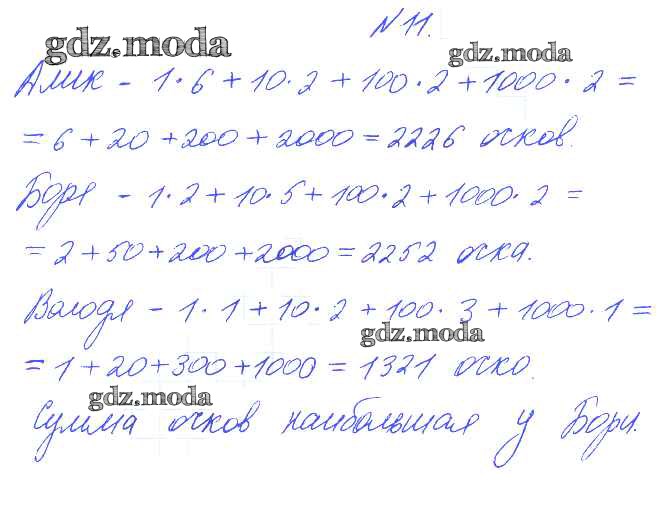 N 11.
gdz.moda
gdz.moda
Алик - 1·6 + 10·2 + 100·2 + 1000·2 =
= 6 + 20 + 200 + 2000 = 2226 очков.
Боря - 1·2 + 10·5 + 100·2 + 1000·2 =
= 2 + 50 + 200 + 2000 = 2252 очка.
Володя - 1·1 + 10·2 + 100·3 + 1000·1 =
gdz.moda
= 1 + 20 + 300 + 1000 = 1321 очко.
gdz.moda
Сумма очков наибольшая у Бори.